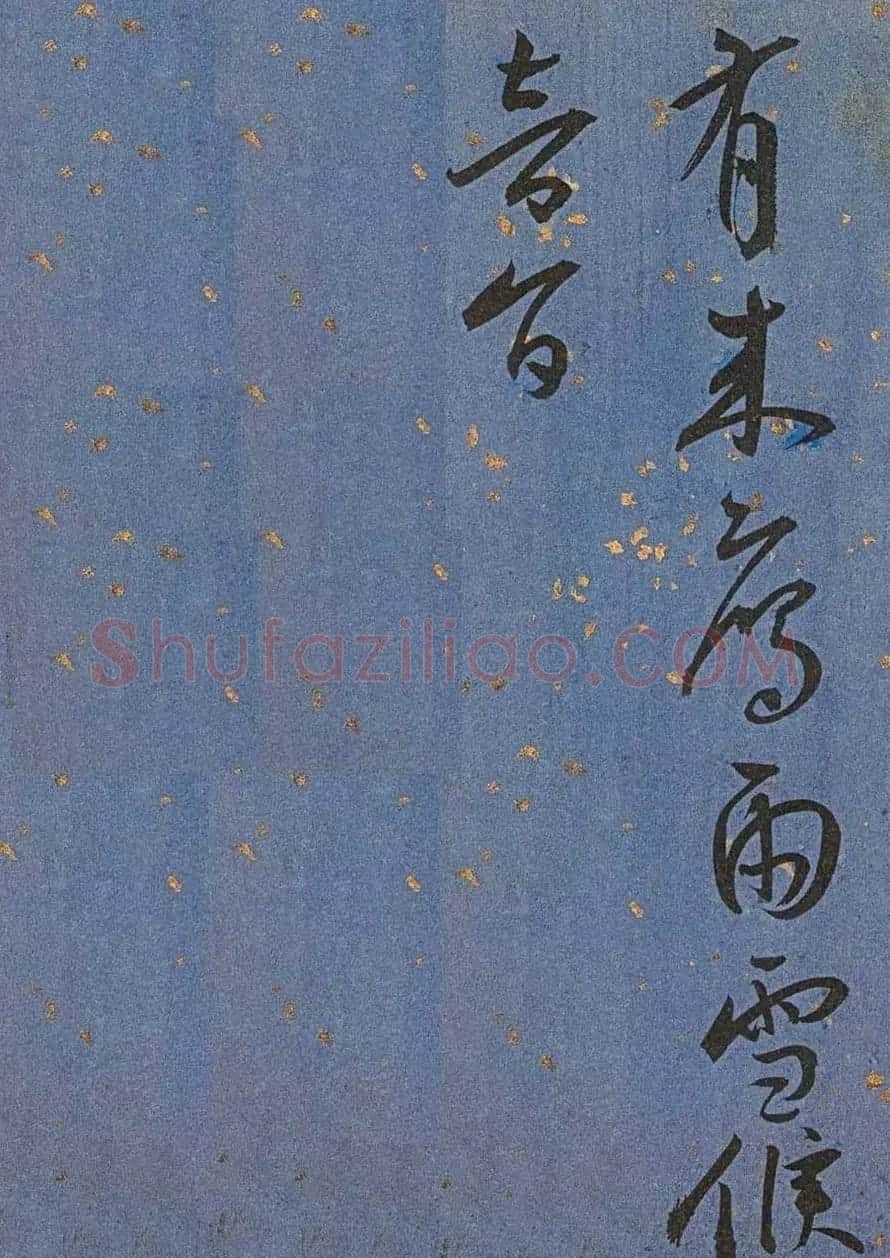 有来鴈雨雪候
音旨
Shufaziliao.COM